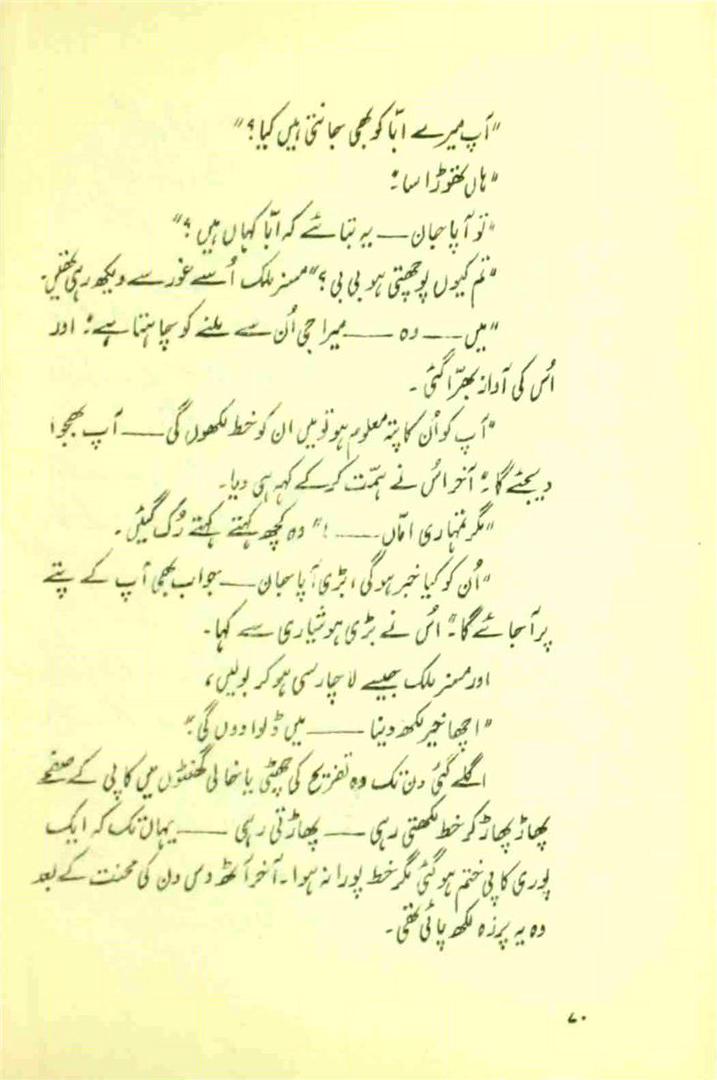 "آپ میرے ابّا کو بھی جانتی ہیں کیا؟"
"ہاں تھوڑا سا۔"
"تو آپا جان — یہ بتائیے کہ ابّا کہاں ہیں؟"
"تم کیوں پوچھتی ہو بی بی؟" مسز ملک اُسے غور سے دیکھ رہی تھیں۔
"میں — وہ — میرا جی اُن سے ملنے کو چاہتا ہے۔" اور
اُس کی آواز بھرّا گئی۔
"آپ کو اُن کا پتہ معلوم ہو تو میں ان کو خط لکھوں گی — آپ بھجوا
دیجئے گا۔" آخر اُس نے ہمّت کر کے کہہ ہی دیا۔
"مگر تمہاری امّاں — !" وہ کچھ کہتے کہتے رُک گئیں۔
"اُن کو کیا خبر ہو گی، بڑی آپا جان — جواب بھی آپ کے پتے
پر آ جائے گا۔" اُس نے بڑی ہوشیاری سے کہا۔
اور مسز ملک جیسے لاچار سی ہو کر بولیں،
"اچھا خیر لکھ دینا — میں ڈلوا دوں گی۔"
اگلے کئی دن تک وہ تفریح کی چھٹی یا خالی گھنٹوں میں کاپی کے صفحے
پھاڑ پھاڑ کر خط لکھتی رہی — پھاڑتی رہی — یہاں تک کہ ایک
پوری کاپی ختم ہو گئی مگر خط پورا نہ ہوا۔ آخر آٹھ دس دن کی محنت کے بعد
وہ یہ پرزہ لکھ پائی تھی۔
۷۰